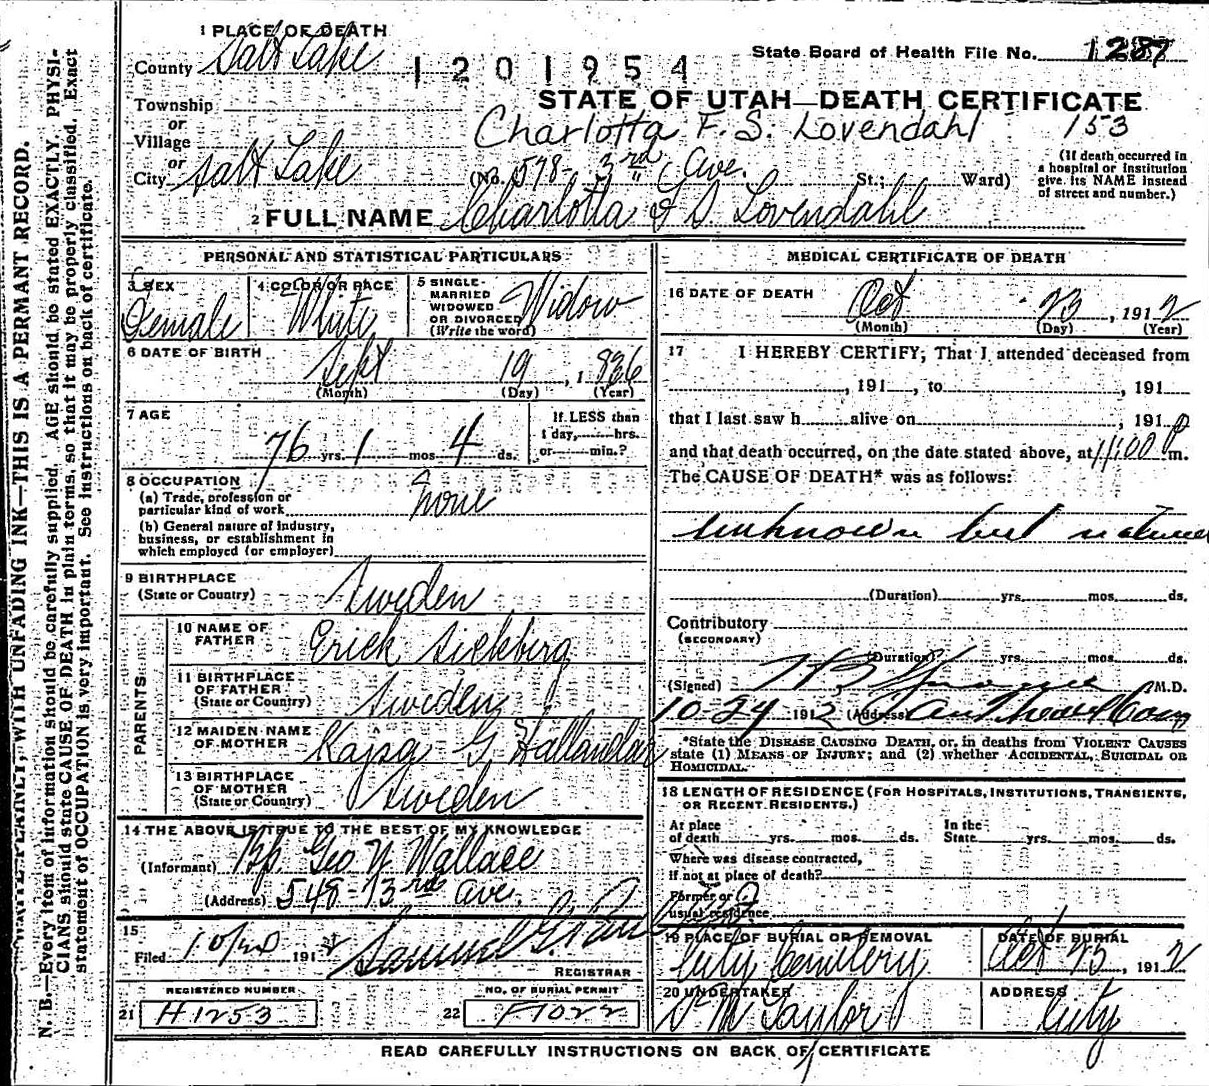 1 PLACE OF DEATH
County Salt Lake
1201954
State Board of Health File No. 1287
STATE OF UTAH—DEATH CERTIFICATE
Township
or
Village
or
City Salt Lake
Charlotta F. S. Lovendahl 153
(No. 578- 3rd Ave. St.; Ward)
(If death occurred in
a hospital or institution
give its NAME instead
of street and number.)
2 FULL NAME Charlotta F S Lovendahl
PERSONAL AND STATISTICAL PARTICULARS
3 SEX
Female
4 COLOR OR RACE
White
5 SINGLE-
MARRIED
WIDOWED
OR DIVORCED
(Write the word)
Widow
6 DATE OF BIRTH
Sept 19, 1836
(Month) (Day) (Year)
7 AGE
76 yrs. 1 mos. 4 ds.
If LESS than
1 day, hrs.
or min.?
8 OCCUPATION
(a) Trade, profession or
particular kind of work None
(b) General nature of industry,
business, or establishment in
which employed (or employer)
9 BIRTHPLACE
(State or Country) Sweden
PARENTS
10 NAME OF
FATHER Erick
11 BIRTHPLACE
OF FATHER
(State or Country) Sweden
12 MAIDEN NAME
OF MOTHER Kajsa G
13 BIRTHPLACE
OF MOTHER
(State or Country) Sweden
14 THE ABOVE IS TRUE TO THE BEST OF MY KNOWLEDGE
(Informant) Bp. Geo W Wallace
(Address) 548- 3rd ave.
15
Filed 191 Samuel G.
REGISTRAR
REGISTERED NUMBER
21 H1253
NO. OF BURIAL PERMIT
22 F1022
MEDICAL CERTIFICATE OF DEATH
16 DATE OF DEATH
Oct 23, 1912
(Month) (Day) (Year)
17 I HEREBY CERTIFY, That I attended deceased from
, 191 , to , 191
that I last saw h alive on , 191
and that death occurred, on the date stated above, at 11:00 P m.
The CAUSE OF DEATH* was as follows:
unknown but natural
(Duration) yrs. mos. ds.
Contributory
(SECONDARY)
(Duration) yrs. mos. ds.
(Signed) M.D.
10-24 1912 (Address)
*State the DISEASE CAUSING DEATH, or, in deaths from VIOLENT CAUSES
state (1) MEANS OF INJURY; and (2) whether ACCIDENTAL, SUICIDAL OR
HOMICIDAL.
18 LENGTH OF RESIDENCE (FOR HOSPITALS, INSTITUTIONS, TRANSIENTS,
OR RECENT RESIDENTS.)
At place
of death yrs. mos. ds.
In the
State yrs. mos. ds.
Where was disease contracted,
if not at place of death?
Former or
usual residence
19 PLACE OF BURIAL OR REMOVAL
City Cemetery
DATE OF BURIAL
Oct 25, 1912
20 UNDERTAKER
S M Taylor
ADDRESS
City
READ CAREFULLY INSTRUCTIONS ON BACK OF CERTIFICATE
WRITE PLAINLY, WITH UNFADING INK—THIS IS A PERMANT RECORD.
N. B.—Every item of information should be carefully supplied. AGE should be stated EXACTLY. PHYSI-
CIANS should state CAUSE OF DEATH in plain terms, so that it may be properly classified. Exact
statement of OCCUPATION is very important. See instructions on back of certificate.